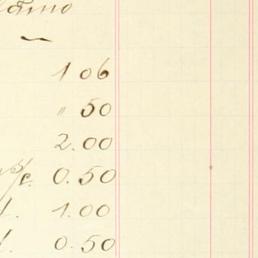 1 06
" 50
2.00
0.50
1.00
0.50